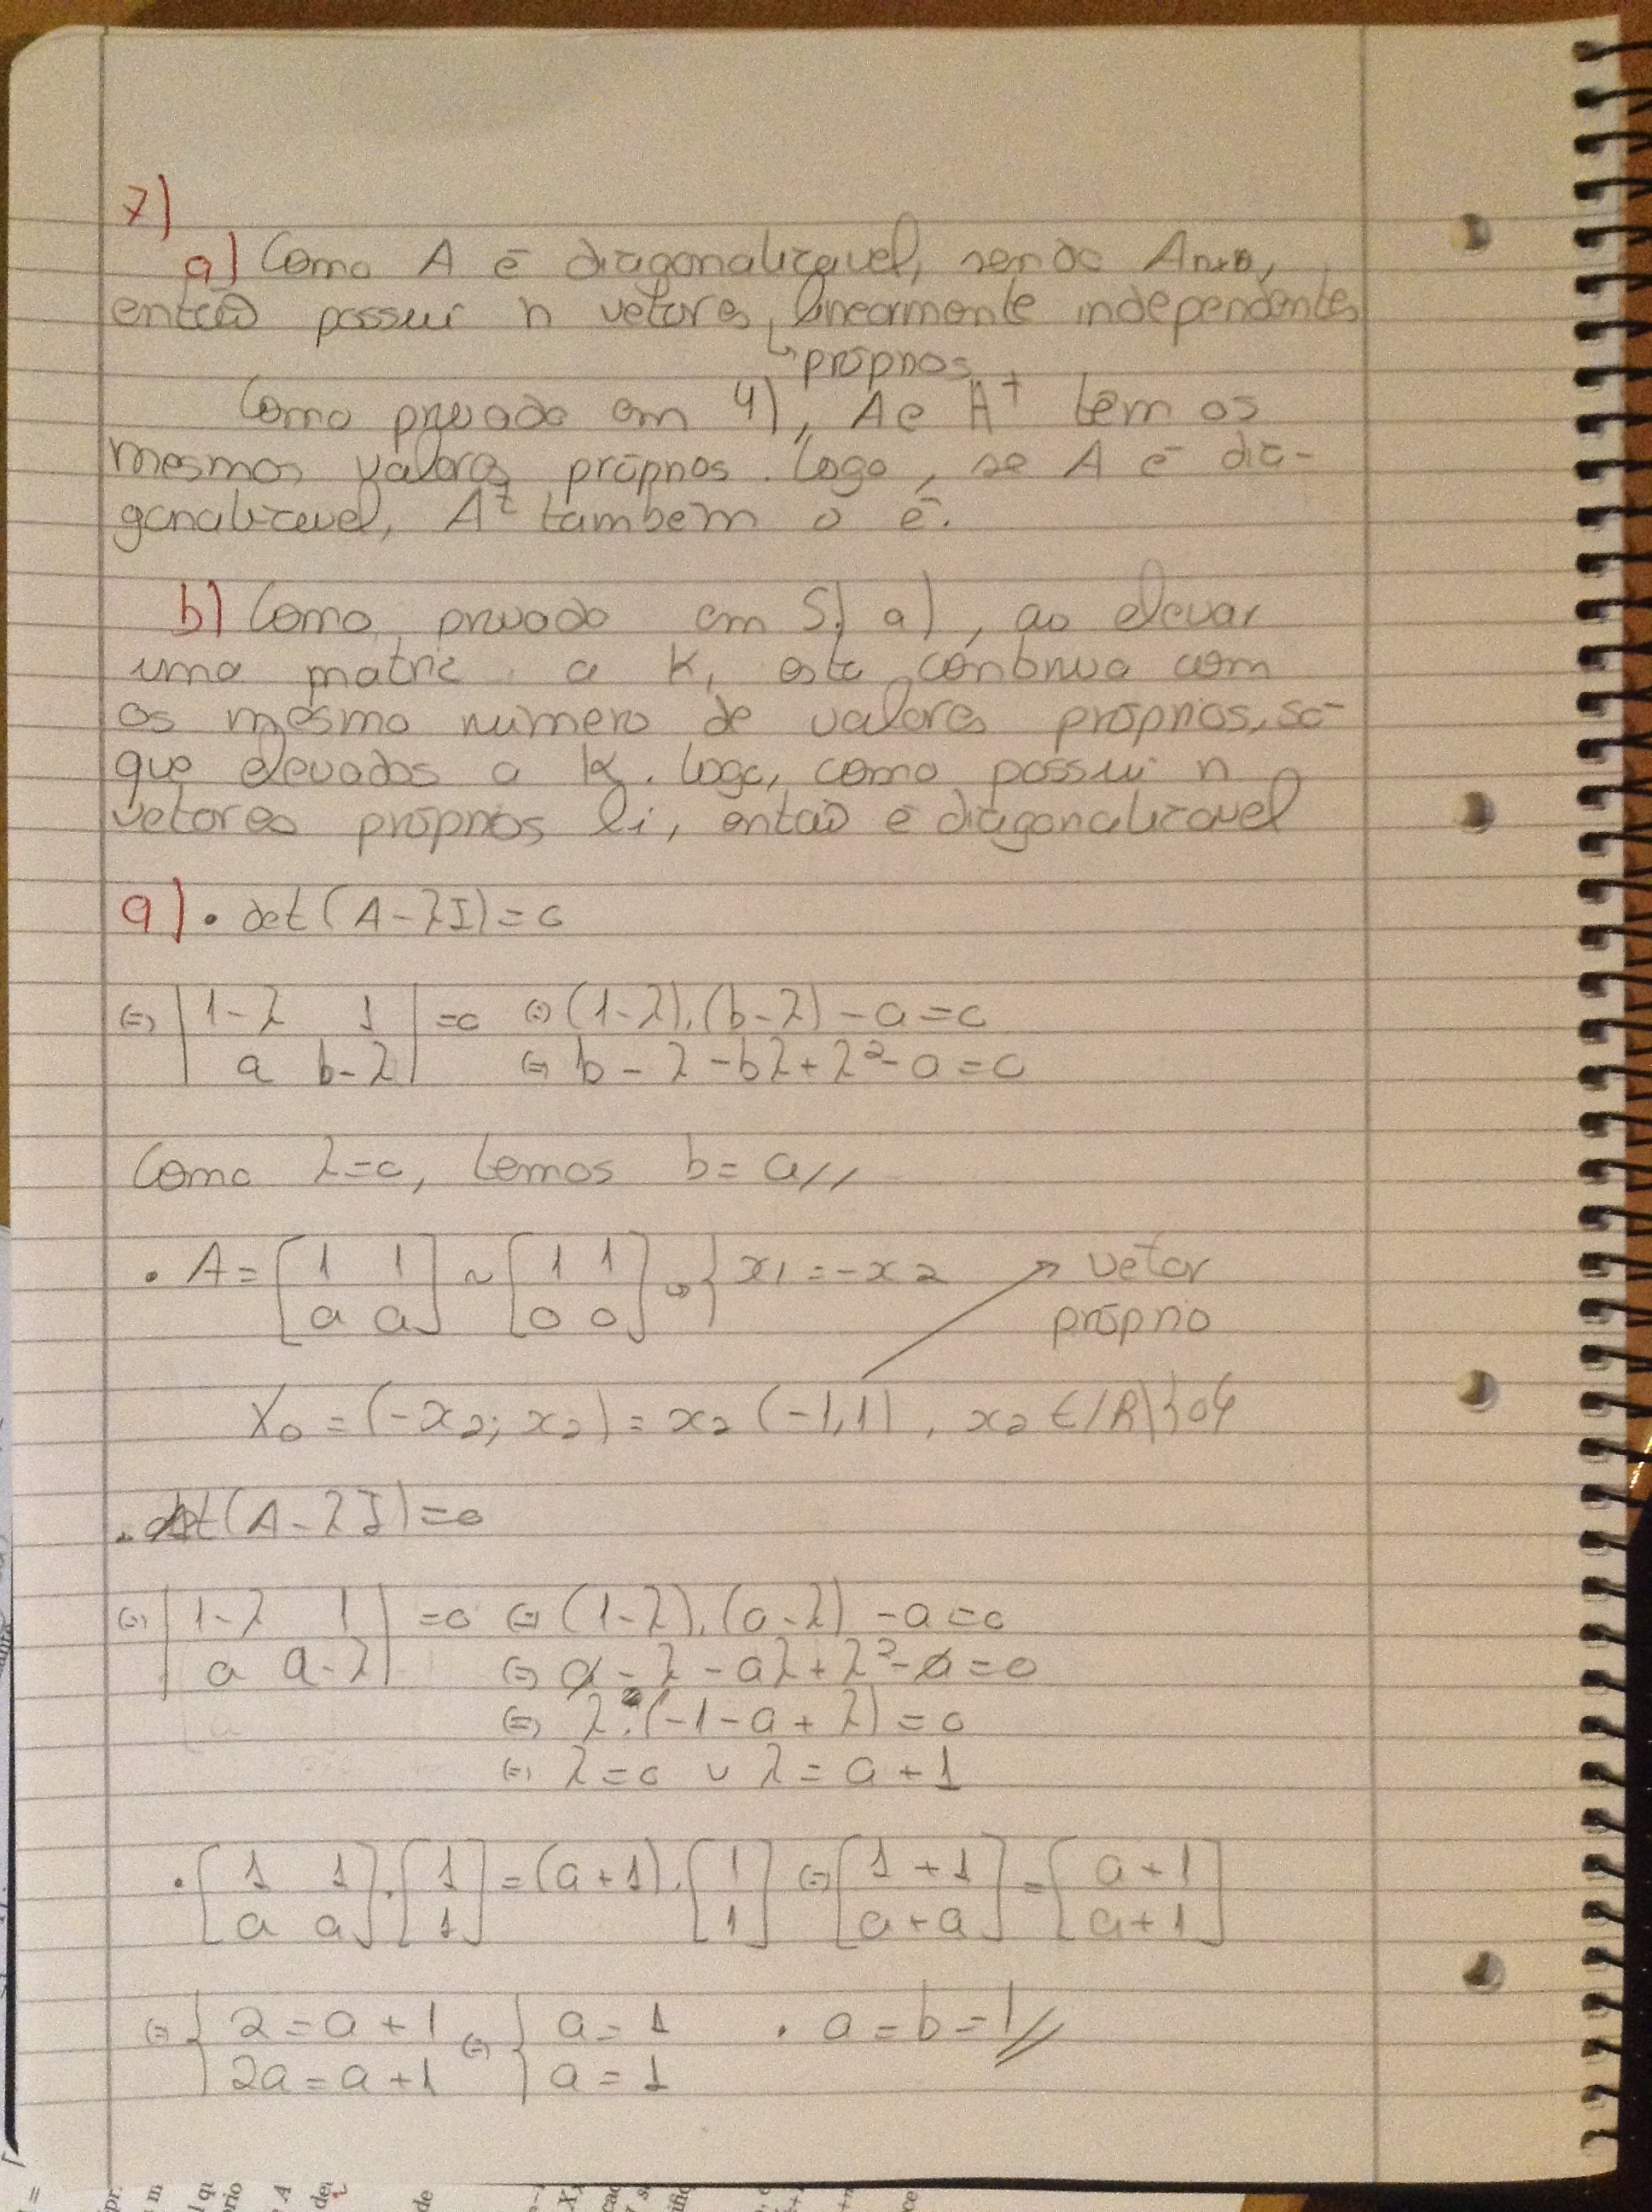 7)
a) Como A é diagonalizavel, sendo Anxn,
então possui n vetores linearmente independentes
↳ próprios
Como provado em 4), A e A^t têm os
mesmos valores próprios. Logo, se A é dia-
gonalizavel, A^t também o é.
b) Como provado em 5) a), ao elevar
uma matriz a K, esta continua com
os mesmo número de valores próprios, só
que elevados a K. Logo, como possui n
vetores próprios li, então é diagonalizavel
9) • det(A-λI)=0
⇔ |1-λ 1| =0 ⇔ (1-λ).(b-λ) -a=0
|a b-λ| ⇔ b-λ-bλ+λ²-a=0
Como λ=0, temos b=a//
• A= [1 1] ~ [1 1] ↳ { x1=-x2 → vetor
[a a] [0 0] próprio
X0 = (-x2; x2) = x2 (-1,1), x2 ∈ IR\{0}
• det(A-λI)=0
⇔ |1-λ 1| =0 ⇔ (1-λ).(a-λ) -a=0
|a a-λ| ⇔ a-λ-aλ+λ²-a=0
⇔ λ.(-1-a+λ)=0
⇔ λ=0 ∨ λ=a+1
• [1 1] . [1] = (a+1). [1] ⇔ [1+1] = [a+1]
[a a] [1] [1] [a+a] [a+1]
⇔ { 2=a+1 ⇔ { a=1 • a=b=1//
{ 2a=a+1 { a=1